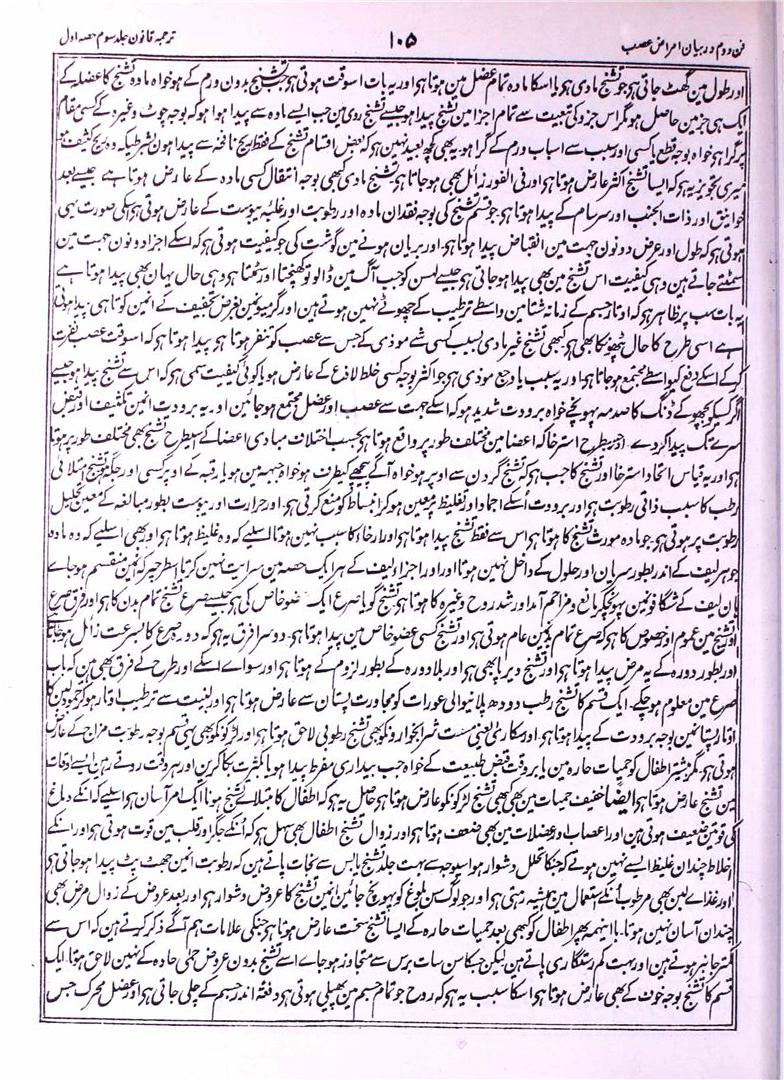 ترجمہ قانون جلد سوم حصہ اول ۱۰۵ فن دوم در بیان امراض عصب
اور طول مین گھٹ جاتی ہو جو تشنج مادی ہو یا اسکا مادہ تمام عضل مین ہوتا ہو اور یہ بات اسوقت ہوتی ہو جب تشنج بدون ورم کے ہو خواہ مادہ تشنج کا عضلہ کے
ایک ہی جز مین حاصل ہو مگر اس جزو کی تبعیت سے تمام اجزا مین تشنج پیدا ہو جیسے تشنج ردی مین جب ایسے مادہ سے پیدا ہوا ہو کہ بوجہ چوٹ وغیرہ کے کسی مقام
پر گرا ہو خواہ بوجہ قطع یا کسی اور سبب سے اسباب ورم کے گرا ہو یہ بھی کچھ بعید نہین ہو کہ بعض اقسام تشنج کے فقط ریح نافخہ سے پیدا ہون بشرطیکہ وہ ریح کثیف ہو
میری تجویز یہ ہو کہ ایسا تشنج اکثر عارض ہوتا ہو اور فی الفور زائل بھی ہو جاتا ہو تشنج مادی کبھی بوجہ انتقال کسی مادہ کے عارض ہوتا ہے جیسے بعد
خوانیق اور ذات الجنب اور سرسام کے پیدا ہوتا ہو جو قسم تشنج کی بوجہ فقدان مادہ اور رطوبت اور غلبہ یبوست کے عارض ہوتی ہو اسکی صورت یہی
ہوتی ہو کہ طول اور عرض دونون جہت مین انقباض پیدا ہوتا ہو اور بریان ہونے مین گوشت کی جو کیفیت ہوتی ہو کہ اسکے اجزا دونون جہت مین
سمٹتے جاتے ہین وہی کیفیت اس تشنج مین بھی پیدا ہو جاتی ہو جیسے تسمہ کو جب آگ مین ڈالو تو کھنچتا اور سمٹتا ہو وہی حال یہان بھی پیدا ہوتا ہے
یہ بات سب پر ظاہر ہو کہ اوتار جسم کے زمانہ شتا مین واسطے ترطیب کے چھوٹے نہین ہوتے ہین اور گرمیونمین بغرض تجفیف کے انمین کوتاہی پیدا ہوتی
ہے اسی طرح کا حال پٹھون کا بھی ہو کبھی تشنج غیر مادی بسبب کسی شے موذی کے جس سے عصب کو تنفر ہوتا ہو پیدا ہوتا ہو کہ اسوقت عصب نفرت
کرکے اسکے دفع کیواسطے مجتمع ہو جاتا ہو اور یہ سبب یا وجع موذی ہو جو اکثر بوجہ کسی خلط لاذع کے عارض ہو یا کوئی کیفیت سمی ہو کہ اس سے تشنج پیدا ہو جیسے
اگر کسیکو بچھو کے ڈنگ کا صدمہ پہونچے خواہ برودت شدید ہو کہ اسکے جہت سے عصب اور عضل مجتمع ہو جائین اور یہ برودت انمین تکثیف اور قبض
سرے تک پیدا کردے اور جسطرح استرخا کہ اعضا مین مختلف طور پر واقع ہوتا ہو بحسب اختلاف مبادی اعضا کے اسیطرح تشنج بھی مختلف طور پر ہوتا
ہو اور یہ قیاس اتحاد استرخا اور تشنج کا جب ہو کہ تشنج گردن سے اوپر ہو خواہ آگے پیچھے کیطرف ہو خواہ جبہہ مین ہو یا رقبہ کے اوپر کسی اور جگہ ہو تشنج امتلائی
رطب کا سبب ذاتی رطوبت ہو اور برودت اسکے اجماد اور تغلیظ پر معین ہو کر انبساط کو منع کرتی ہو اور حرارت اور یبوست بطور مبالغہ کے معین تحلیل
رطوبت پر ہوتی ہو جو مادہ مورث تشنج کا ہوتا ہو اس سے فقط تشنج پیدا ہوتا ہو اور ارخا کا سبب نہین ہوتا اسلیے کہ وہ غلیظ ہوتا ہو اور بھی اسلیے کہ وہ مادہ
جوہر لیف کے اندر بطور سریان اور حلول کے داخل نہین ہوتا اور اجزاء لیف کے ہر ایک حصہ مین سرایت نہین کرتا اسطرحپر کہ انمین منقسم ہو جاے
ہان لیف کے شگافونمین پہونچکر مانع و مزاحم آمد و رشد روح وغیرہ کا ہوتا ہو تشنج گویا صرع ایک عضو خاص کی ہو جیسے صرع تشنج تمام بدن کا ہو اور فرق صرع
اور تشنج مین عموم اور خصوص کا ہو کہ صرع تمام بدن مین عام ہوتی ہو اور تشنج کسی عضو خاص مین پیدا ہوتا ہو۔ دوسرا فرق یہ ہو کہ دورہ صرع کا بسرعت زائل ہو جاتا ہے
اور بطور دورہ کے یہ مرض پیدا ہوتا ہو اور تشنج دیر پا بھی ہو اور بلا دورہ کے بطور لزوم کے ہوتا ہو اور سوا اسکے اور طرح کے فرق بھی ہین کہ باب
صرع مین معلوم ہو چکے۔ ایک قسم کا تشنج رطب دودھ پلانیوالی عورات کو مجاورت پستان سے عارض ہوتا ہو اور لبنیت سے ترطیب اوتار ہو کر جمود لبن کا
اوتار پستانمین بوجہ برودت کے پیدا ہوتا ہو۔ اور سکاری یعنی مست شرابخوارونکو بھی تشنج رطوبی لاحق ہوتا ہو اور لڑکونکو بھی یہی قسم بوجہ رطوبت مزاج کے عارض
ہوتی ہو مگر بیشتر اطفال کو حمیات حارہ مین یا بر وقت قبض طبیعت کے خواہ جب بیداری مفرط پیدا ہو یا بکثرت بکا کرین اور ہر وقت روتے رہین ایسے اوقات
مین تشنج عارض ہوتا ہو ایضاً خفیف حمیات مین بھی کبھی تشنج لڑکونکو عارض ہوتا ہو حاصل یہ ہو کہ اطفال کا مبتلاے تشنج ہونا ایک امر آسان ہو اسلیے کہ انکے دماغ
کی قوتین ضعیف ہوتی ہین اور اعصاب اور عضلات مین بھی ضعف ہوتا ہو اور زوال تشنج اطفال بھی سہل ہو کہ انکے جگر اور قلب مین قوت ہوتی ہو اور انکے
اخلاط چندان غلیظ ایسے نہین ہوتے کہ جنکا تحلل دشوار ہو اسیوجہ سے بہت جلد تشنج یابس سے نجات پاتے ہین کہ رطوبت انمین جھٹ پٹ پیدا ہو جاتی ہو
اور غذاے لبن بھی مرطوب انکے استعمال مین ہمیشہ رہتی ہو اور جو لوگ سن بلوغ کو پہونچ جائین انمین تشنج کا عروض دشوار ہو اور بعد عروض کے زوال مرض بھی
چندان آسان نہین ہوتا۔ با اینہمہ پھر اطفال کو کبھی بعد حمیات حارہ کے ایسا تشنج سخت عارض ہوتا ہو جنکی علامات ہم آگے ذکر کرتے ہین کہ اس سے
کمتر جانبر ہوتے ہین اور بہت کم رستگاری پاتے ہین لیکن جسکا سن سات برس سے متجاوز ہو جاے اسے تشنج بدون عروض حمی حادہ کے نہین لاحق ہوتا۔ ایک
قسم کا تشنج بوجہ خوف کے بھی عارض ہوتا ہو اسکا سبب یہ ہو کہ روح جو تمام جسم مین پھیلی ہوتی ہو دفعۃً اندر جسم کے چلی جاتی ہو اور عضل محرک جس